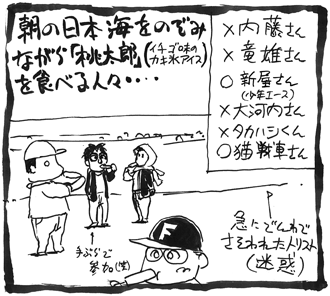 朝の日本海をのぞみ
ながら「桃太郎」(イチゴ味のカキ氷アイス)
を食べる人々・・・・
×内藤さん
×竜雄さん
○新屋さん
(少年エース)
×大河内さん
×タカハシくん
○猫戦車さん
手ぶらで
参加(笑)
急にでんわで
さそわれた人リスト
(迷惑)
F